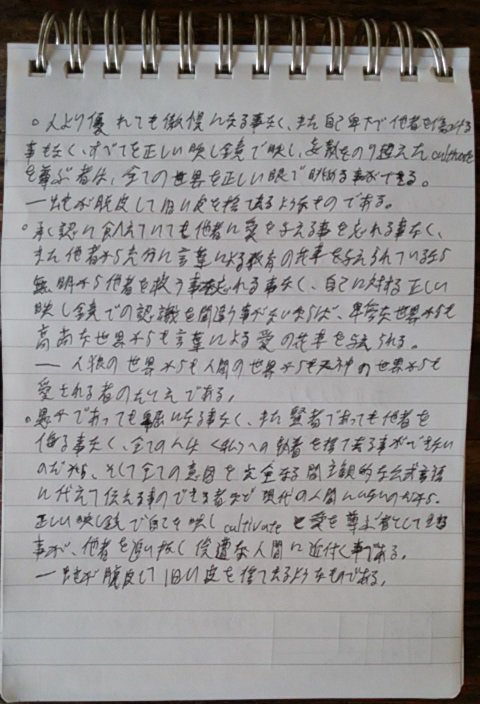 ○人より優れても傲慢になる事なく、また自己卑下で他者を傷つける
事もなく、すべてを正しい映し鏡で映し、妄執をのり越えたcultivate
を尊ぶ者は、全ての世界を正しい眼で眺める事ができる。
―蛇が脱皮して旧い皮を捨て去るようなものである。
○承認に飢えていても他者に愛を与える事を忘れる事なく、
また他者から充分に言葉による教育の花束を与えられているなら
無明から他者を救う事を忘れる事なく、自己に対する正しい
映し鏡での認識を間違う事がないならば、卑劣な世界からも
高尚な世界からも言葉による愛の花束を与えられる。
― 人狼の世界からも人間の世界からも天神の世界からも
愛される者のたとえである。
○愚かであっても卑屈になる事なく、また賢者であっても他者を
侮る事なく、全ての人は〈私〉への執着を捨て去る事ができない
のだから、そして全ての意図を完全なる間主観的な公式言語
に代えて伝える事のできる者など現代の人間にいないのだから、
正しい映し鏡で自己を映しcultivateと愛を尊ぶ者として生きる
事が、他者を追い抜く俊適な人間に近付く事である。
―蛇が脱皮して旧い皮を捨て去るようなものである。